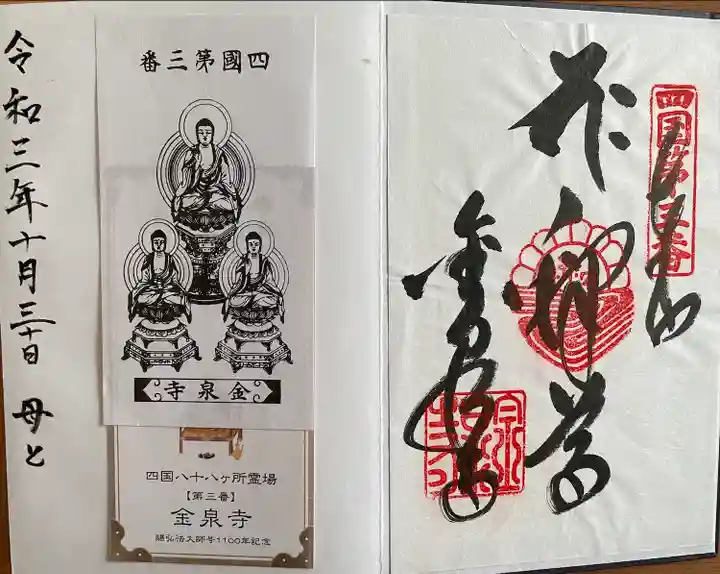 令和三年十月三十日 母と
四國第三番
金泉寺
四国八十八ヶ所霊場
【第三番】
金泉寺
賜弘法大師号1100年記念
四国第三番
奉拝
釋
金泉寺